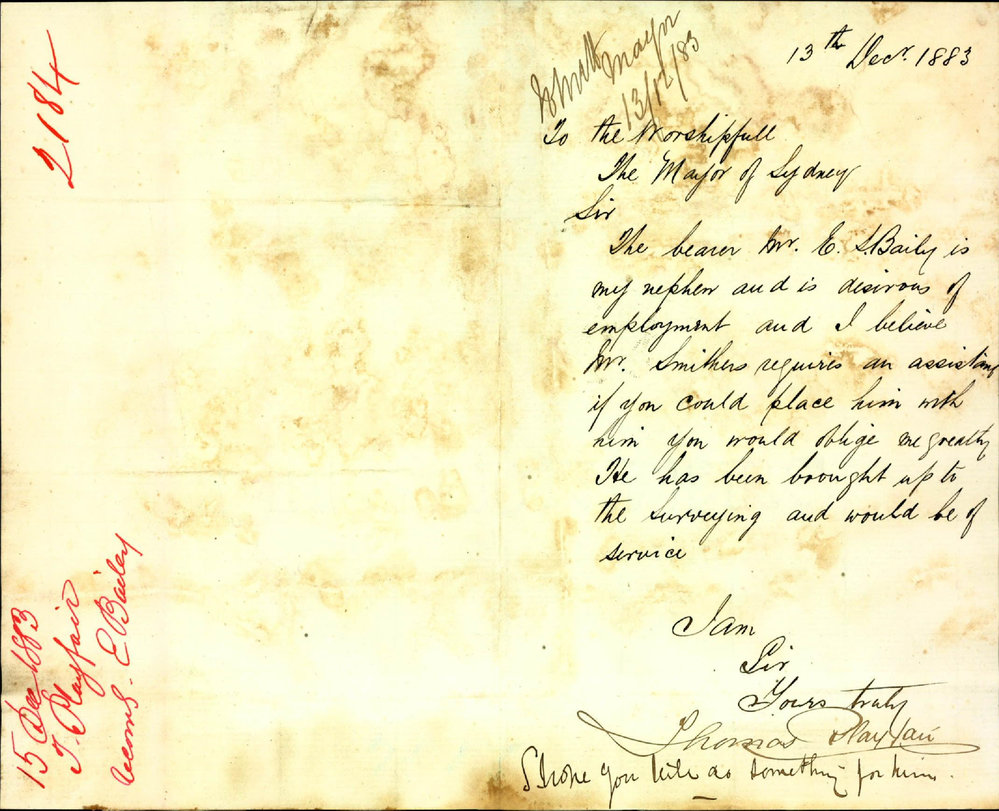 2184
15 Dec 1883
T Playfair
recomg. E Bailey
Mayor
13/12/83
13th Decr. 1883
To the Worshipfull
The Mayor of Sydney
Sir
The bearer Mr. E. S. Baily is
my nephew and is desirous of
employment and I believe
Mr. Smithers requires an assistant
if you could place him with
him you would oblige me greatly
He has been brought up to
the surveying and would be of
service
I am
Sir
Yours truly
Thomas Playfair
I hope you will do something for him.